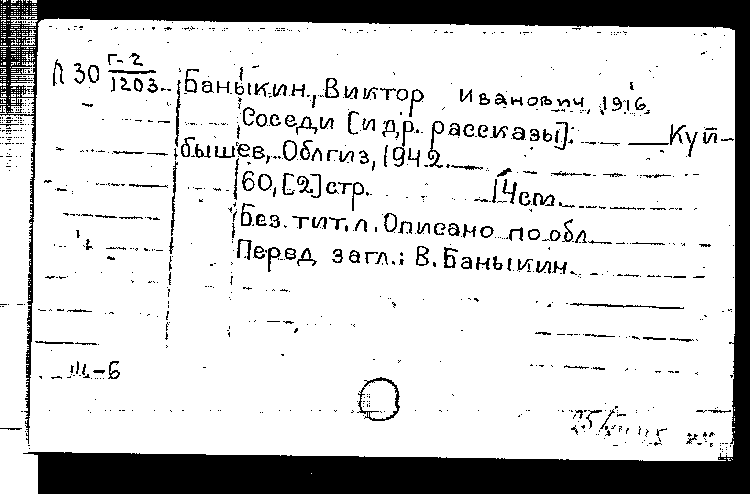 Л 30 Г-2/1203 Баныкин, Виктор Иванович, 1916
Соседи [и др. рассказы]. Куй-
бышев, Облгиз, 1942
60, [2] стр. 14 см.
Без. тит. л. Описано по обл.
Перед загл.: В. Баныкин.
Ш-Б